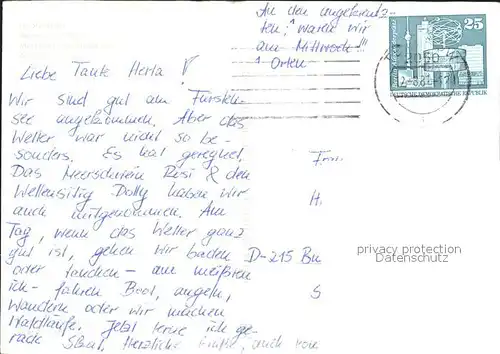 An den angekreutz-
ten, waren wir
am Mittwoch!!!
↑ Orten
25
DEUTSCHE DEMOKRATISCHE REPUBLIK
Liebe Tante Herta!
Wir sind gut am
see angekommen. Aber das
Wetter war nicht so be-
sonders. Es hat geregnet.
Das Meerschwein Rosi & den
Wellensittig Dolly haben wir
auch mitgenommen. Am
Tag, wenn das Wetter ganz
gut ist, gehen wir baden
oder tauchen - am meißten
ich - fahren Boot, angeln,
wandern oder wir machen
Waldläufe. Jetzt lerne ich ge-
rade Skat. Herzliche Grüße, auch von
Frau
H.
D-215 Bu
S
privacy protection
Datenschutz